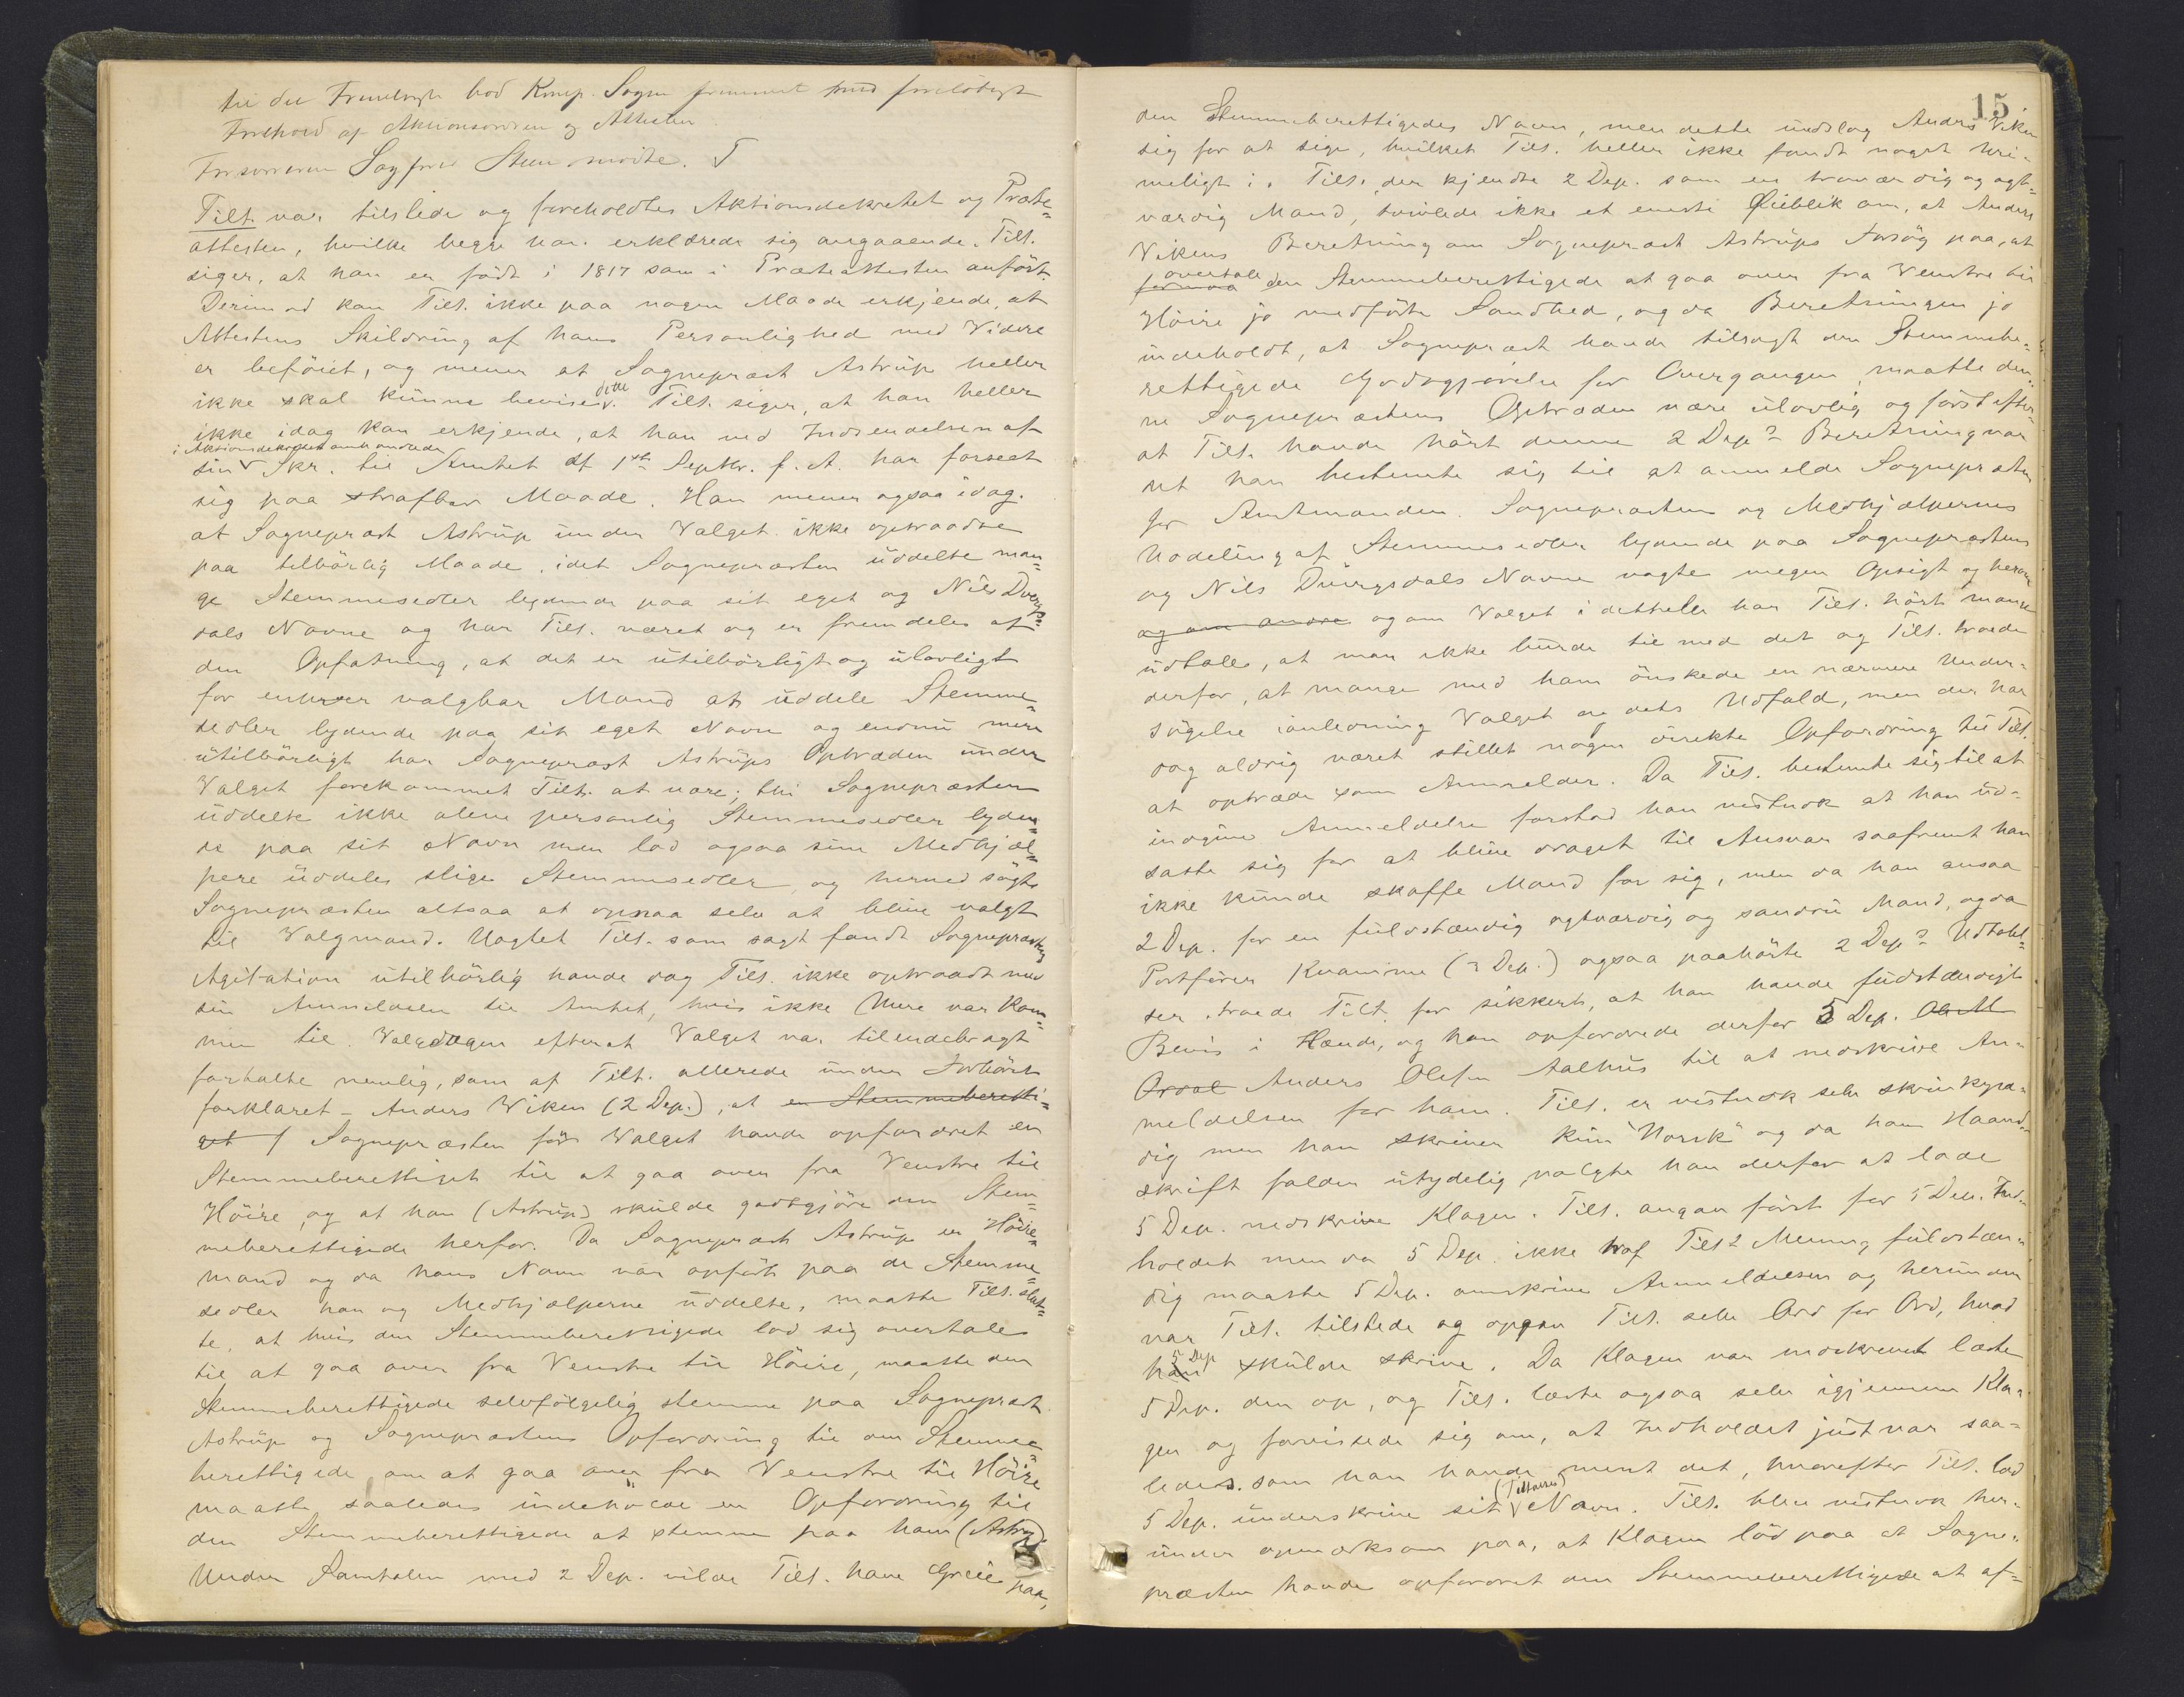 til det Fremlagte bad Konp. Sagen fremmet med foreløbigt
Forehold af Aktionsordren og Attesten
Forsvareren Sagfører Steen mødte. T
Tilt. var tilstede og foreholdtes Aktionsdekretet og Præste-
attesten, hvilke begge han erklærede sig angaaende. Tilt.
siger, at han er født i 1817 som i Præsteattesten anført
Derimod kan Tilt. ikke paa nogen Maade erkjende, at
Attestens Skildring af hans Personlighed med Videre
er beføiet, og mener at Sogneprest Astrup heller
ikke skal kunne bevise dette. Tilt. siger, at han heller
ikke idag kan erkjende, at han ved Indsendelsen af
sin i Aktionsdekretet omhandlede Skr. til Amtet af 1ste Septbr. f. A. har forseet
sig paa strafbar Maade. Han mener ogsaa idag
at Sogneprest Astrup under Valget ikke optraadte
paa tilbørlig Maade, idet Sognepræsten uddelte man-
ge Stemmesedler lydende paa sit eget og Nils Dvergs-
dals Navne og har Tilt. været og er fremdeles af
den Opfatning, at det er utilbørligt og ulovligt
for enhver valgbar Mand at uddele Stemme-
sedler lydende paa sit eget Navn og endnu mere
utilbørligt har Sogneprest Astrups Optræden under
Valget forekommet Tilt. at være; thi Sognepræsten
uddelte ikke alene personlig Stemmesedler lyden-
de paa sit Navn men lod ogsaa sine Medhjæl-
pere uddele slige Stemmesedler, og herved søgte
Sognepræsten altsaa at opnaa selv at blive valgt
til Valgmand. Uagtet Tilt. som sagt fandt Sogneprestens
Agitation utilbørlig havde dog Tilt. ikke optraadt med
sin Anmeldelse til Amtet, hvis ikke Mere var kom-
men til. Valgdagen efterat Valget var tilendebragt
fortalte nemlig, som af Tilt. allerede under Forhøret
forklaret – Anders Viken (2 Dep.), at en Stemmeberetti-
get / Sognepræsten før Valget havde opfordret en
Stemmeberettiget til at gaa over fra Venstre til
Høire, og at han (Astrup) skulde godtgjøre den Stem-
meberettigede herfor. Da Sogneprest Astrup er Høire-
mand og da hans Navn var opført paa de Stemme-
sedler han og Medhjælperne uddelte, maatte Tilt. slut-
te, at hvis den Stemmeberettigede lod sig overtale
til at gaa over fra Venstre til Høire, maatte den
Stemmeberettigede selvfølgelig stemme paa Sogneprest
Astrup og Sogneprestens Opfordring til den Stemme-
berettigede om at gaa over fra Venstre til Høire
maatte saaledes indeholde en Opfordring til
den Stemmeberettigede at stemme paa ham (Astrup)
Under Samtalen med 2 Dep. vilde Tilt. have Greie paa,
15
den Stemmeberettigedes Navn, men dette undslog Anders Viken
sig for at sige, hvilket Tilt. heller ikke fandt noget uri-
meligt i. Tilt. der kjendte 2 Dep. som en troværdig og agt-
værdig Mand, tvivlede ikke et eneste Øieblik om, at Anders
Vikens Beretning om Sogneprest Astrups Forsøg paa, at
formaa overtale den Stemmeberettigede at gaa over fra Venstre til
Høire jo medførte Sandhed, og da Beretningen jo
indeholdt, at Sogneprest havde tilsagt den Stemmebe-
rettigede Godtgjørelse for Overgangen, maatte den-
ne Sogneprestens Optræden være ulovlig og først efter
at Tilt. havde hørt denne 2 Dep.s Beretning var
det han bestemte sig til at anmelde Sognepresten
for Amtmanden. Sognepresten og Medhjælpernes
Uddeling af Stemmesedler lydende paa Sogneprestens
og Nils Dvergsdals Navne vagte megen Opsigt og herom
og om andre og om Valget i dethele har Tilt. hørt mange
udtale, at man ikke burde tie med det og Tilt. troede
derfor, at mange med ham ønskede en nærmere Under-
søgelse ianledning Valget og dets Udfald, men der har
dog aldrig været stillet nogen direkte Opfordring til Tilt.
at optræde som Anmelder. Da Tilt. bestemte sig til at
indgive Anmeldelse forstod han vistnok at han ud-
satte sig for at blive draget til Ansvar saafremt han
ikke kunde skaffe Mand for sig, men da han ansaa
2 Dep. for en fuldstændig agtværdig og sanddru Mand, og da
Postfører Kvamme (3 Dep.) ogsaa paahørte 2 Dep.s Udtalel-
ser, troede Tilt. for sikkert, at han havde fuldstændigt
Bevis i Hænde, og han opfordrede derfor 5 Dep. Ole M
Ordal Anders Olsen Aalhus til at nedskrive An-
meldelsen for ham. Tilt. er vistnok selv skrivekyn-
dig men han skriver kun "Norsk" og da hans Haand-
skrift falder utydelig valgte han derfor at lade
5 Dep. nedskrive Klagen. Tilt. angav først for 5 Dep. Ind-
holdet men da 5 Dep. ikke traf Tilt.s Mening fuldstæn-
dig maatte 5 Dep. omskrive Anmeldelsen og herunder
var Tilt. tilstede og opgav Tilt. selv Ord for Ord, hvad
han 5 Dep skulde skrive. Da Klagen var nedskrevet læste
5 Dep. den op, og Tilt. læste ogsaa selv igjennem Kla-
gen og forvissede sig om, at Indholdet just var saa-
ledes som han havde ment det, hvorefter Tilt. lod
5 Dep. underskrive sit (Tiltaltes) Navn. Tilt. blev vistnok her-
under opmærksom paa, at Klagen lød paa at Sogne-
præsten havde opfordret den Stemmeberettigede at af-